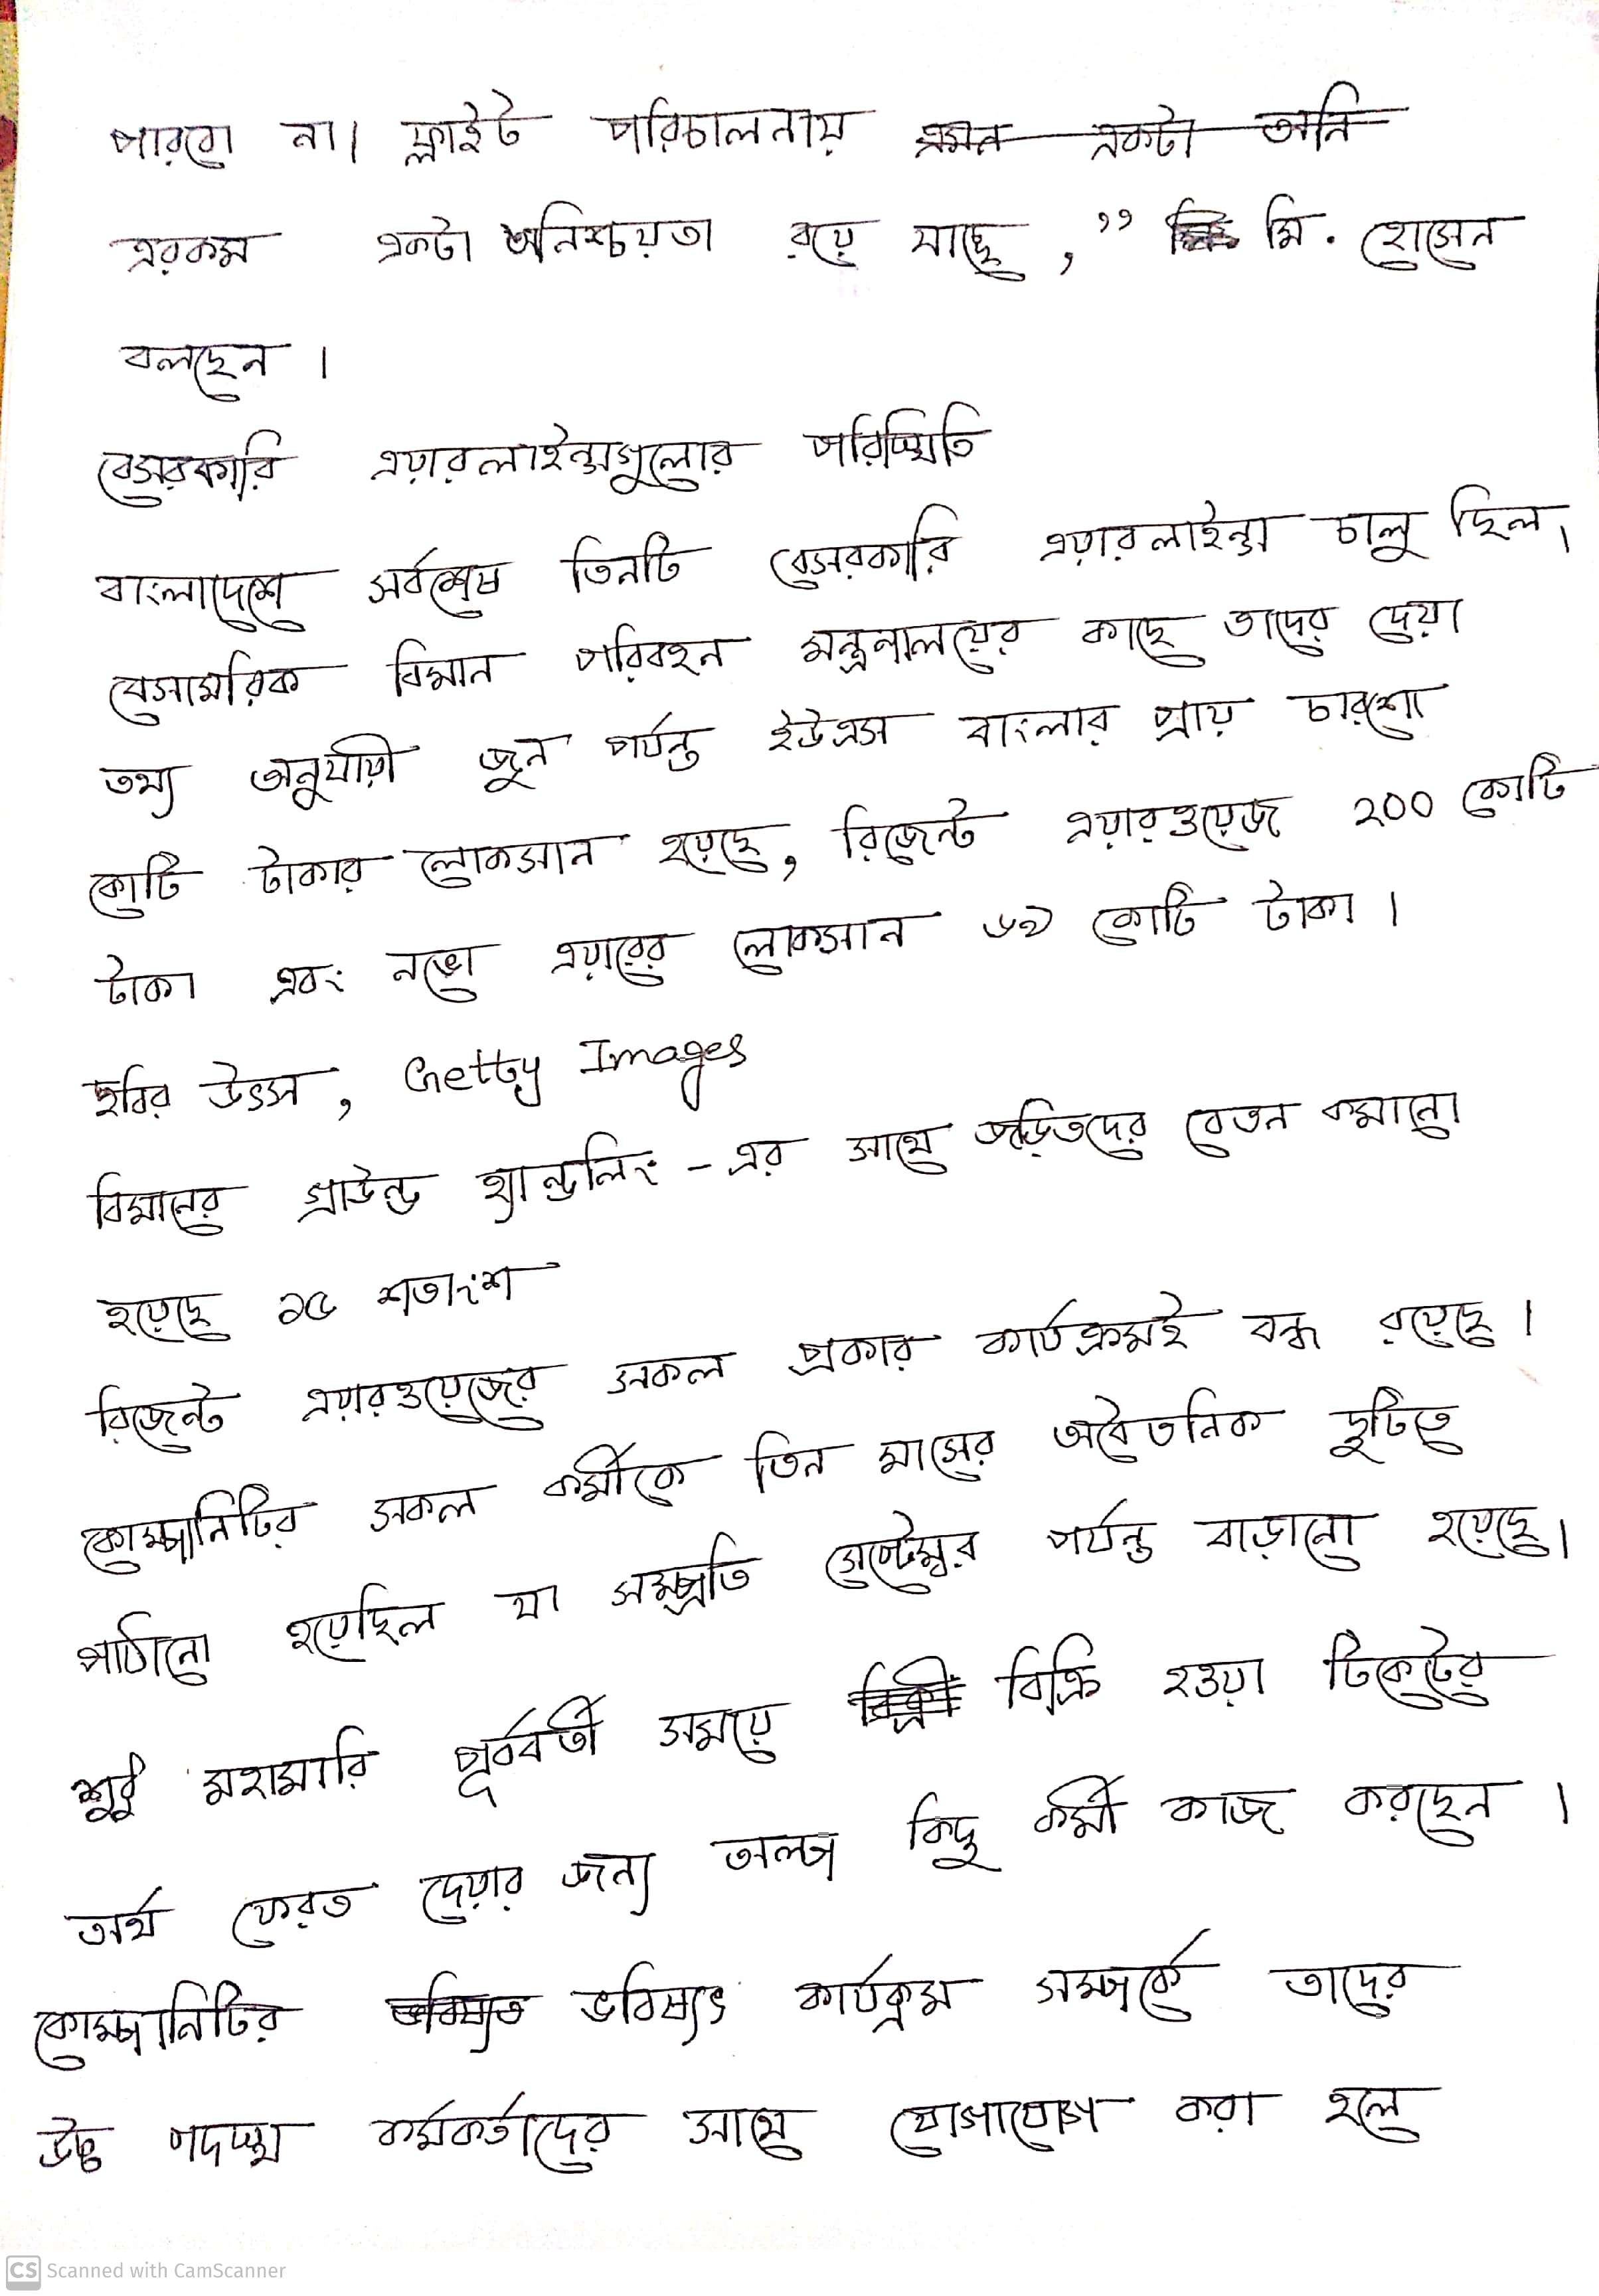 পারবো না। ফ্লাইট পরিচালনায় এমন একটা অনি
এরকম একটা অনিশ্চয়তা রয়ে যাচ্ছে,” মি. হোসেন
বলছেন।
বেসরকারি এয়ারলাইন্সগুলোর পরিস্থিতি
বাংলাদেশে সর্বশেষ তিনটি বেসরকারি এয়ারলাইন্স চালু ছিল।
বেসামরিক বিমান পরিবহন মন্ত্রনালয়ের কাছে তাদের দেয়া
তথ্য অনুযায়ী জুন পর্যন্ত ইউএস বাংলার প্রায় চারশো
কোটি টাকার লোকসান হয়েছে, রিজেন্ট এয়ারওয়েজ ২০০ কোটি
টাকা এবং নভো এয়ারের লোকসান ৬৯ কোটি টাকা।
ছবির উৎস, Getty Images
বিমানের গ্রাউন্ড হ্যান্ডলিং-এর সাথে জড়িতদের বেতন কমানো
হয়েছে ১৫ শতাংশ
রিজেন্ট এয়ারওয়েজের সকল প্রকার কার্যক্রমই বন্ধ রয়েছে।
কোম্পানিটির সকল কর্মীকে তিন মাসের অবৈতনিক ছুটিতে
পাঠানো হয়েছিল যা সম্প্রতি সেপ্টেম্বর পর্যন্ত বাড়ানো হয়েছে।
শুধু মহামারি পূর্ববর্তী সময়ে বিক্রী বিক্রি হওয়া টিকেটের
অর্থ ফেরত দেয়ার জন্য অল্প কিছু কর্মী কাজ করছেন।
কোম্পানিটির ভবিষ্যত ভবিষ্যৎ কার্যক্রম সম্পর্কে তাদের
উচ্চ পদস্থ কর্মকর্তাদের সাথে যোগাযোগ করা হলে
CS Scanned with CamScanner